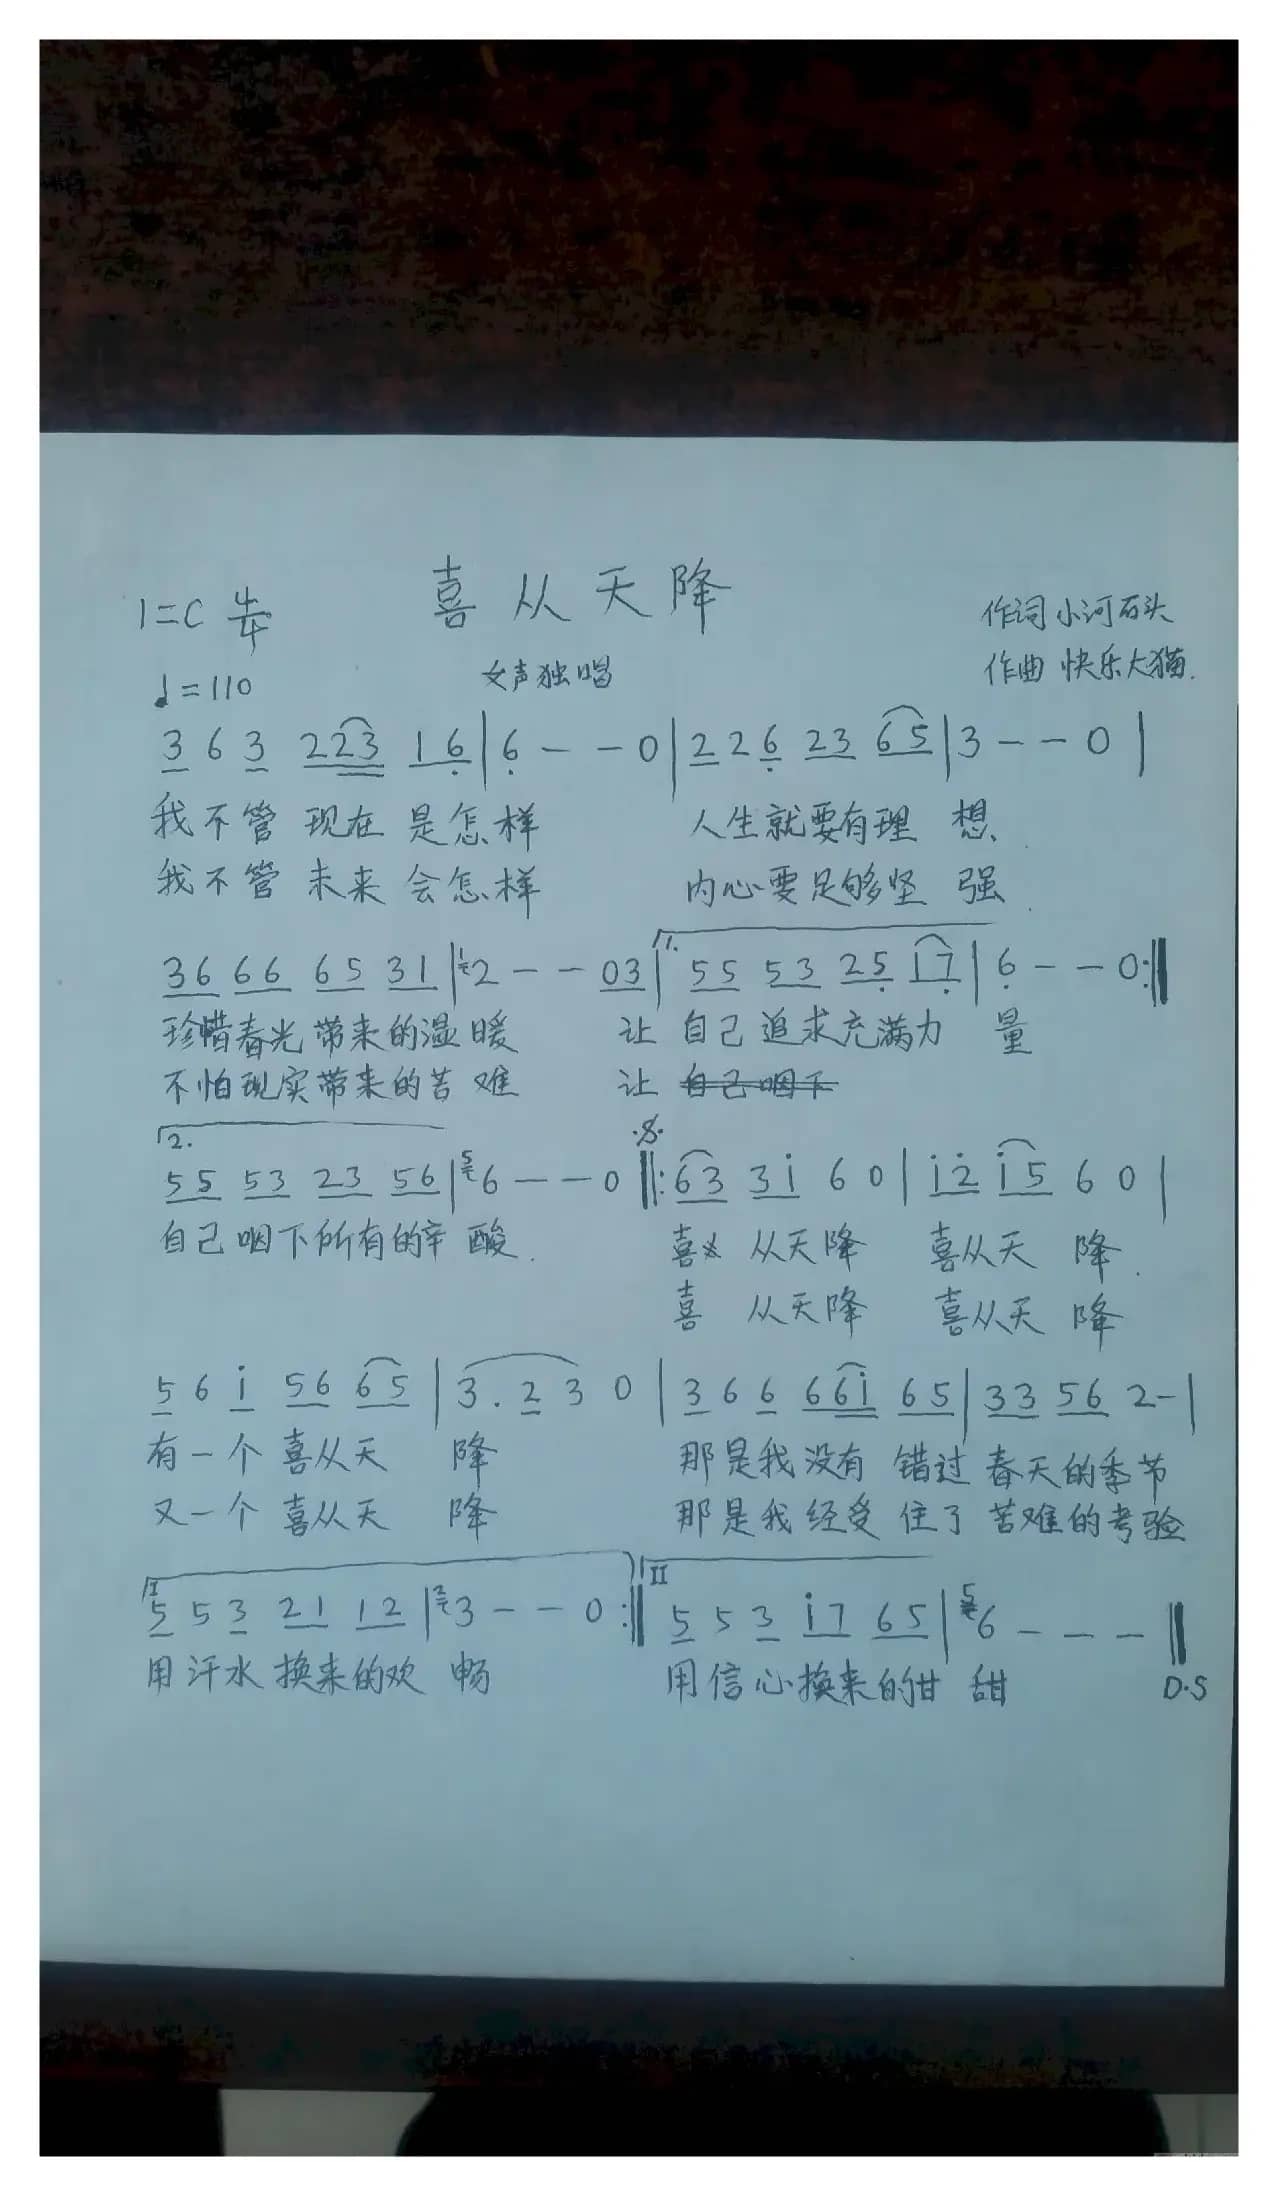 喜从天降
1=C 4/4
作词 小河石头
♩=110
女声独唱
作曲 快乐大猫.
3 6 3 223 16 | 6 - - 0 | 2 2 6 23 65 | 3 - - 0 |
我不管 现在 是怎样 人生就要有理 想、
我不管 未来 会怎样 内心要足够坚 强.
36 66 65 31 | 2 - - 03 | 1. 55 53 25 17 | 6 - - 0 :‖
珍惜春光带来的温暖 让 自己 追求充满力 量
不怕现实带来的苦难 让 自己咽下
2. 55 53 23 56 | 5 6 - - 0 ‖: 63 3i 6 0 | i2 i5 6 0 |
自己咽下所有的辛 酸. 喜 从天降 喜从天 降.
喜 从天降 喜从天 降
5 6 i 56 65 | 3. 2 3 0 | 3 6 6 66i 65 | 33 56 2 - |
有一个 喜从天 降 那是我没有 错过 春天的季节
又一个 喜从天 降 那是我经受 住了 苦难的考验
I 5 5 3 21 12 | 2 3 - - 0 :‖ II 5 5 3 i7 65 | 5 6 - - - ‖
用汗水 换来的欢 畅 用信心换来的甘 甜 D.S